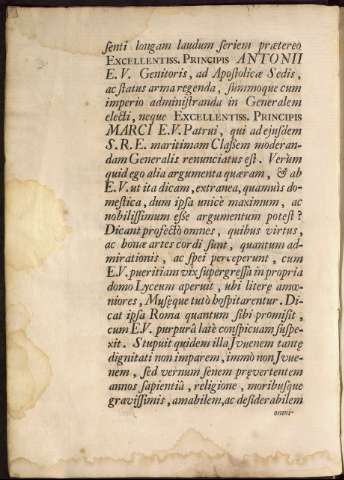 senti longam laudum seriem prætereo
EXCELLENTISS. PRINCIPIS ANTONII
E.V. Genitoris, ad Apostolicæ Sedis,
ac status arma regenda, summoque cum
imperio administranda in Generalem
electi, neque EXCELLENTISS. PRINCIPIS
MARCI E.V. Patrui, qui ad ejusdem
S.R.E. maritimam Classem moderan-
dam Generalis renunciatus est. Verùm
quid ego alia argumenta quæram, & ab
E.V. ut ita dicam, extranea, quamuìs do-
mestica, dum ipsa unicè maximum, ac
nobilissimum esse argumentum potest?
Dicant profectò omnes, quibus virtus,
ac bonæ artes cordi sunt, quantum ad-
mirationis, ac spei perceperunt, cum
E.V. pueritiam vix supergressa in propria
domo Lyceum aperuit, ubi literę amœ-
niores, Musęque tutò hospitarentur. Di-
cat ipsa Roma quantum sibi promisit,
cum E.V. purpurâ latè conspicuam suspe-
xit. Stupuit quidem illa Juvenem tantę
dignitati non imparem, immò non Juve-
nem, sed vernum senem prevertentem
annos sapientiâ, religione, moribusque
gravissimis, amabilem, ac desiderabilem
omni-